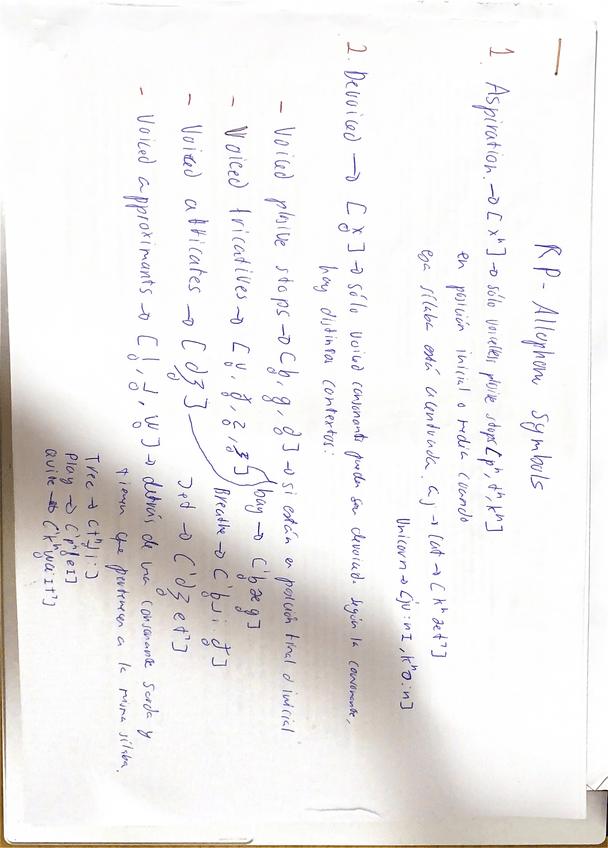 RP - Allophone Symbols
1. Aspiration. → [xʰ] → sólo voiceless plosive stops [pʰ, tʰ, kʰ]
en posición inicial o media cuando
esa sílaba está acentuada. Ej → Cat → [kʰætˀ]
Unicorn → [ju:nɪ,kʰɔ:n]
2. Devoiced → [x̥] → sólo voiced consonants pueden ser devoiced. Según la consonante,
hay distintos contextos:
- Voiced plosive stops → [b̥, g̊, d̥] → si están en posición final o inicial
bag → ['b̥æg̊]
- Voiced fricatives → [v̥, ð̥, z̥, ʒ̊]
Breathe → ['b̥ɹi:ð̥]
- Voiced affricates → [d̥ʒ̊]
Jet → ['d̥ʒ̊etˀ]
- Voiced approximants → [l̥, ɹ̥, w̥] → detrás de una consonante sorda y
tienen que pertenecer a la misma sílaba.
Tree → [tʰɹ̥i:]
Play → ['pʰl̥eɪ]
Quite → ['kʰw̥aɪtˀ]